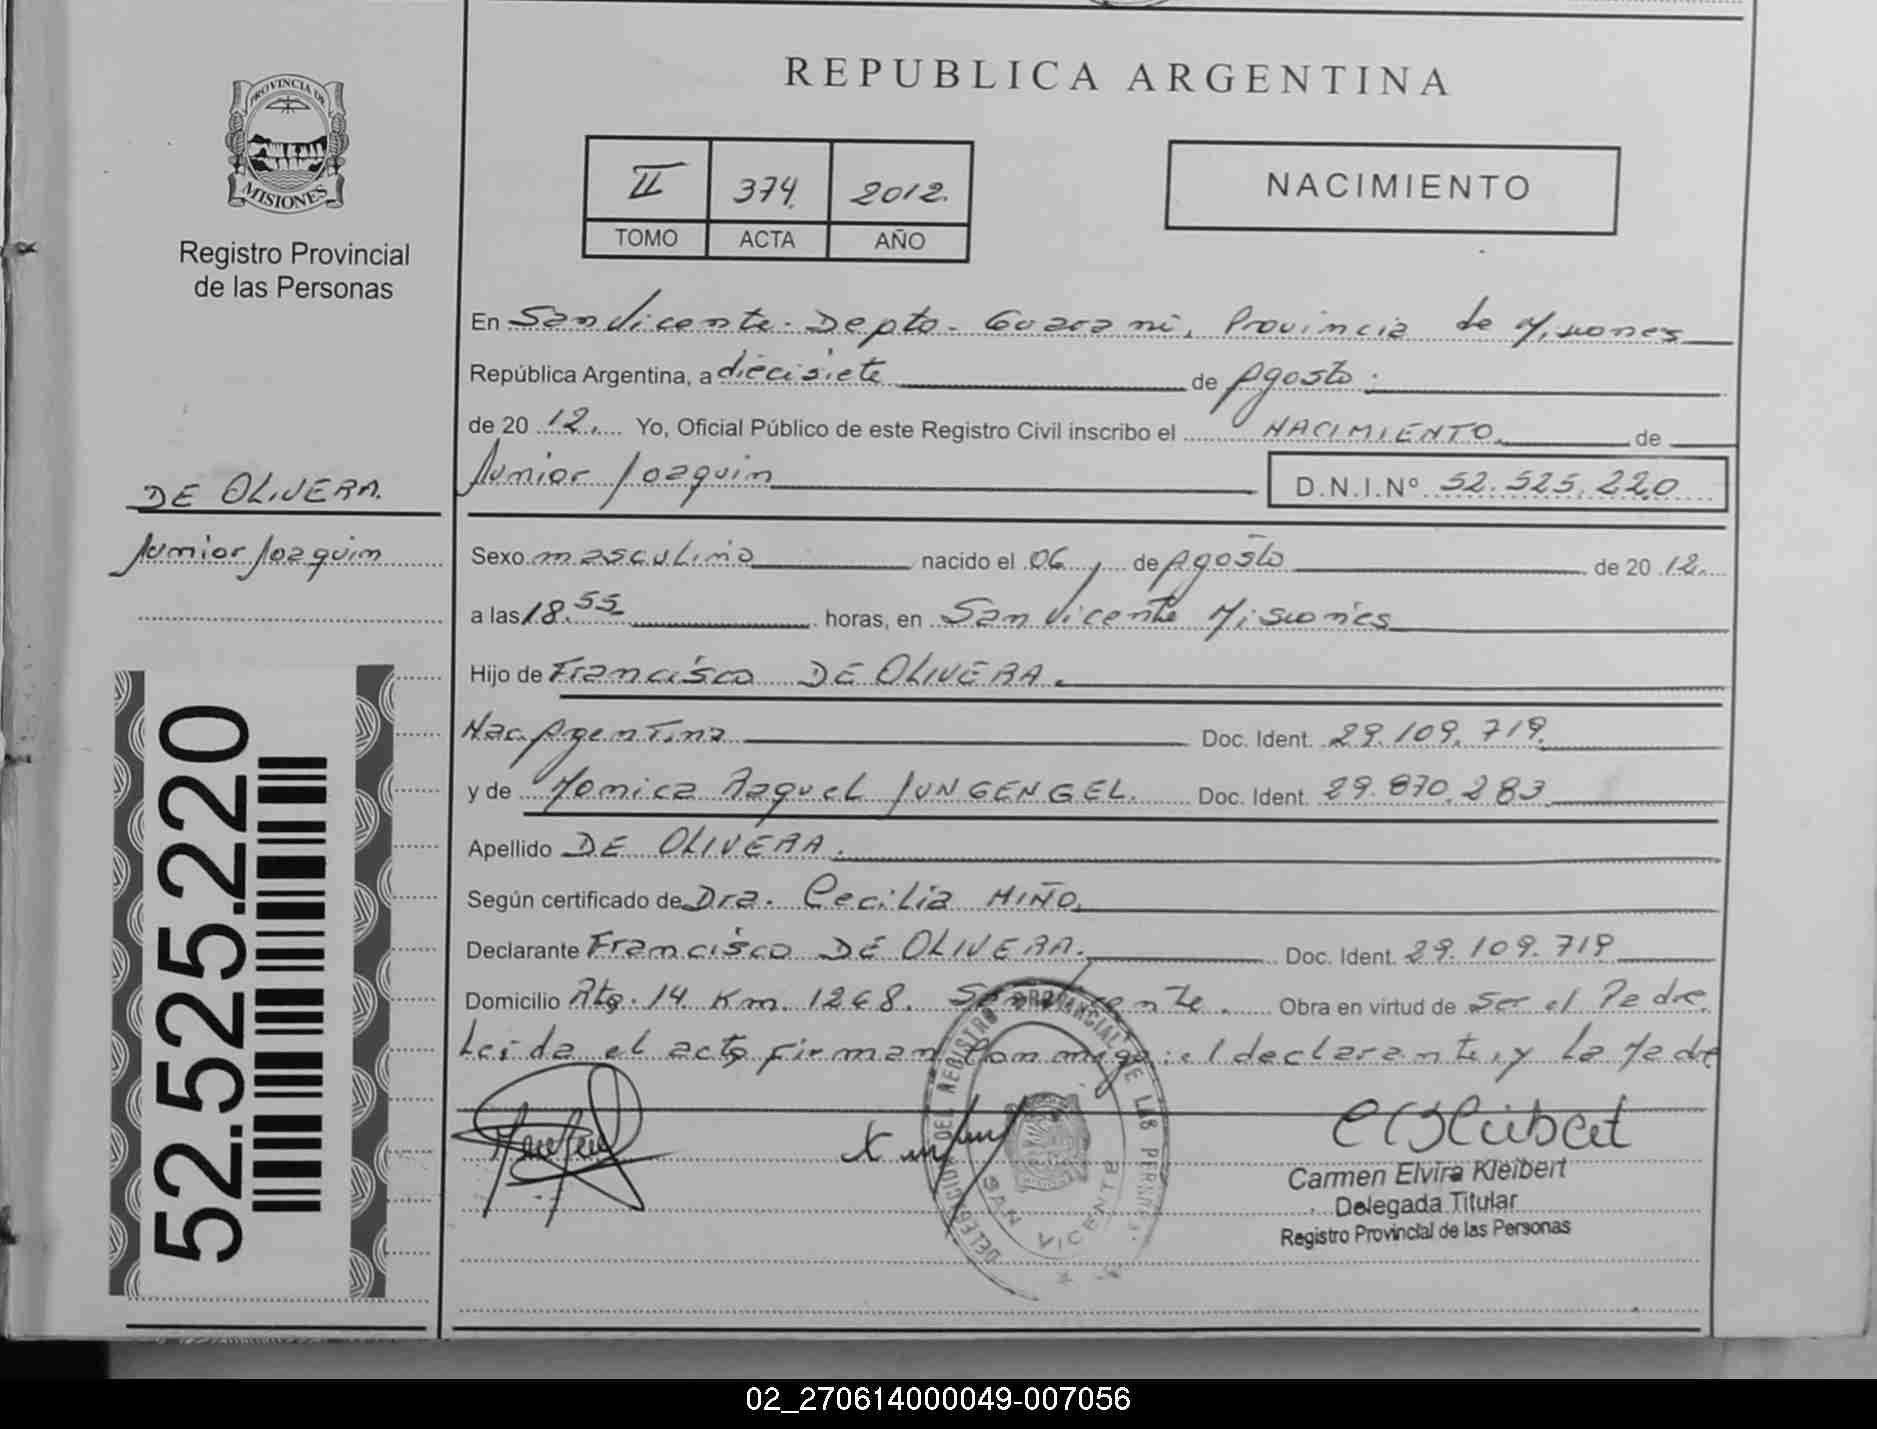 PROVINCIA DE
MISIONES
Registro Provincial
de las Personas
DE OLIVERA.
Junior Joaquin
52.525.220
REPUBLICA ARGENTINA
II 374. 2012.
TOMO ACTA AÑO
NACIMIENTO
En San Vicente - Depto - Guarani, Provincia de Misiones
República Argentina, a diecisiete de Agosto.
de 2012. Yo, Oficial Público de este Registro Civil inscribo el NACIMIENTO de
Junior Joaquin D.N.I.Nº 52.525.220
Sexo masculino nacido el 06 de Agosto de 2012.
a las 18.55 horas, en San Vicente Misiones
Hijo de Francisco DE OLIVERA.
Nac. Argentina Doc. Ident. 29.109.719.
y de Monica Raquel JUNGENGEL. Doc. Ident. 29.870.283
Apellido DE OLIVERA.
Según certificado de Dra. Cecilia MIÑO.
Declarante Francisco DE OLIVERA. Doc. Ident. 29.109.719
Domicilio Rta. 14 Km. 1268. San Vicente. Obra en virtud de ser el Padre.
Leida el acta firman conmigo: el declarante, y La Madre
DELEGACION DEL REGISTRO PROVINCIAL DE LAS PERSONAS
SAN VICENTE
Carmen Elvira Kleibert
Delegada Titular
Registro Provincial de las Personas
02_270614000049-007056